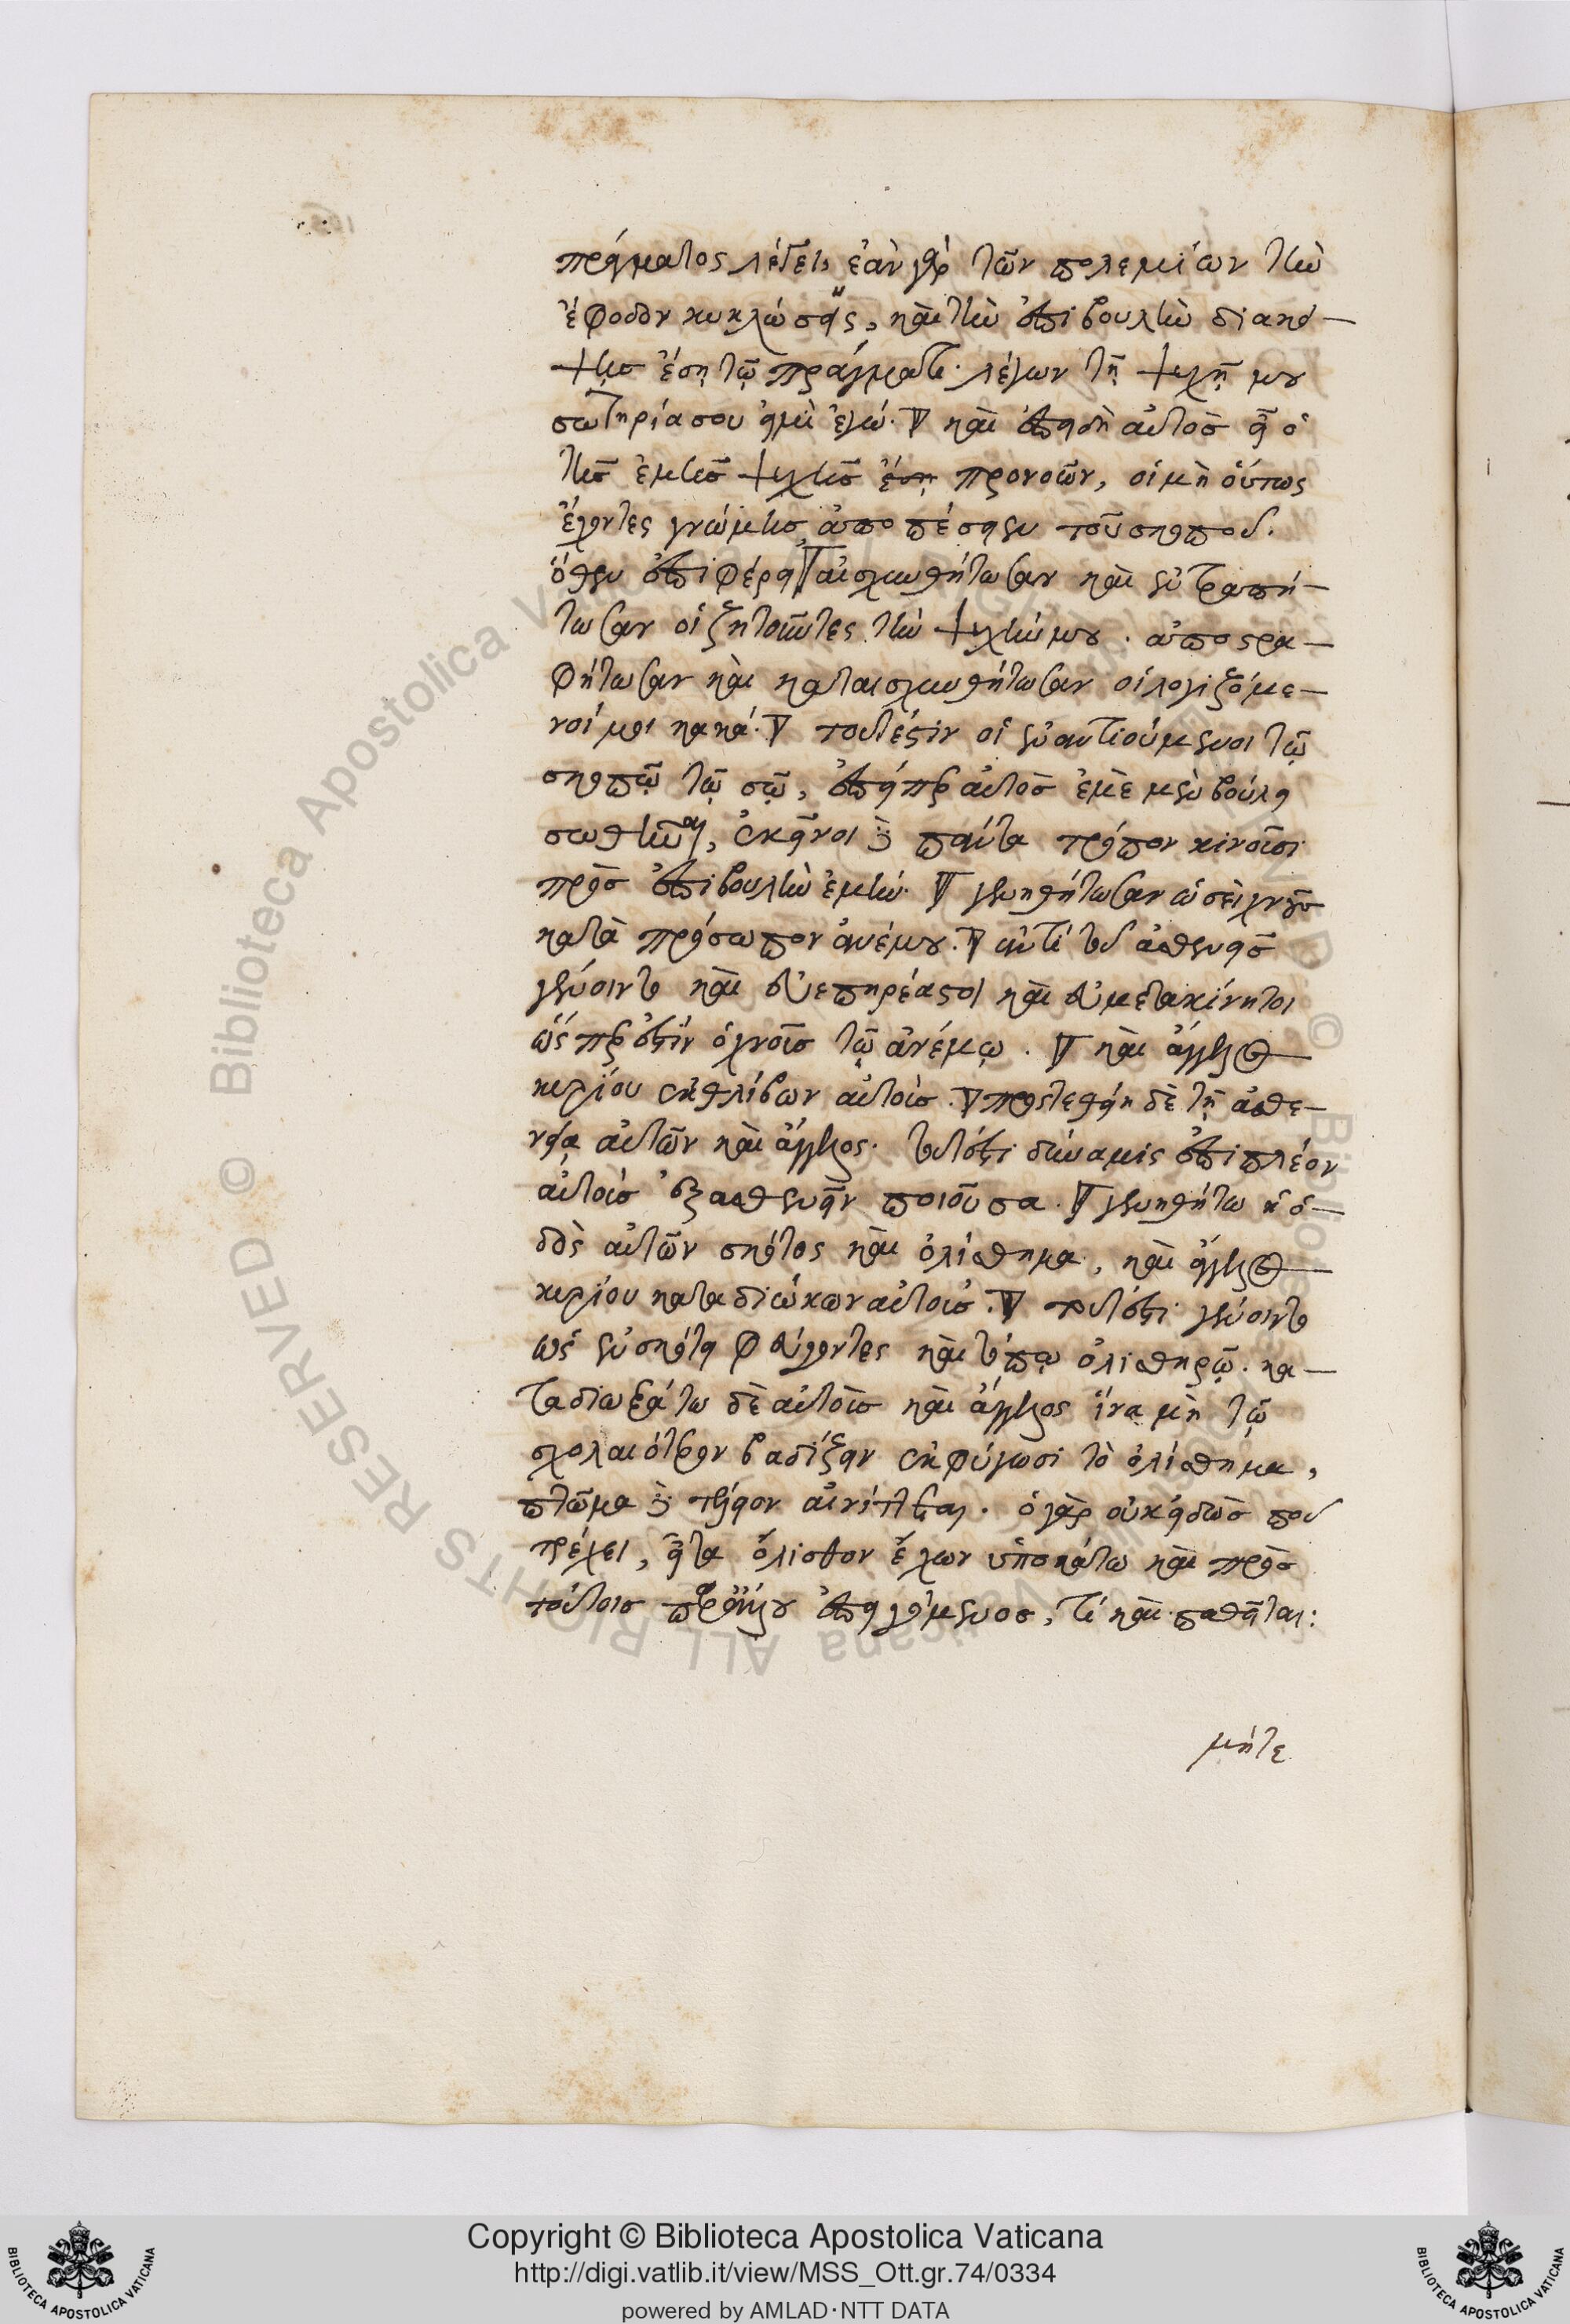 πράγματος λέγει, ἐὰν γὰρ τῶν πολεμίων τὴν
ἔφοδον κυκλώσῃς, καὶ τὴν ἐπιβουλὴν διακό-
ψῃσ ἔσῃ τῷ πράγματι λέγων τῇ ψυχῇ μου
σωτηρία σου εἰμὶ ἐγώ. καὶ ἐπειδὴ αὐτὸσ εἶ ὁ
τῆσ ἐμῆσ ψυχῆσ ἔσῃ προνοῶν, οἱ μὴ οὕτως
ἔχοντες γνώμησ ἀποπέσειεν τοῦ σκοποῦ.
ὅθεν ἐπιφέρει αἰσχυνθήτωσαν καὶ ἐντραπή-
τωσαν οἱ ζητοῦντες τὴν ψυχήν μου. ἀποστρα-
φήτωσαν καὶ καταισχυνθήτωσαν οἱ λογιζόμε-
νοί μοι κακά. τουτέστιν οἱ ἐναντιούμενοι τῷ
σκοπῷ τῷ σῷ, ἐπείπερ αὐτὸσ ἐμὲ μὲν βούλει
σωθῆναι, ἐκεῖνοι δὲ πάντα τρόπον κινοῦσι
πρὸσ ἐπιβουλὴν ἐμήν. γενηθήτωσαν ὡσεὶ χνοῦσ
κατὰ πρόσωπον ἀνέμου. ἀντὶ τοῦ ἀσθενεῖσ
γένοιντο καὶ εὐεπηρέαστοι καὶ εὐμετακίνητοι
ὥσπερ ἐστὶν ὁ χνοῦσ τῷ ἀνέμῳ. καὶ ἄγγελος
κυρίου ἐκθλίβων αὐτούσ. προστεθείη δὲ τῇ ἀσθε-
νείᾳ αὐτῶν καὶ ἄγγελος. τουτέστι δύναμις ἐπιπλέον
αὐτοὺσ ἐξασθενεῖν ποιοῦσα. γενηθήτω ἡ ὁ-
δὸς αὐτῶν σκότος καὶ ὀλίσθημα, καὶ ἄγγελος
κυρίου καταδιώκων αὐτούσ. τουτέστι γένοιντο
ὡς ἐν σκότει φεύγοντες καὶ τόπῳ ὀλισθηρῷ. κα-
ταδιωξάτω δὲ αὐτοὺσ καὶ ἄγγελος ἵνα μὴ τῷ
σχολαιότερον βαδίζειν ἐκφύγωσι τὸ ὀλίσθημα,
πτῶμα δὲ αἰνίττεται. ὁ γὰρ οὐκ εἰδὼσ ποῦ
τρέχει, εἶτα ὄλισθον ἔχων ὑποκάτω καὶ πρὸσ
τούτοισ ἐπειγόμενοσ, τί καὶ παθεῖται:
μήτε
Copyright © Biblioteca Apostolica Vaticana
http://digi.vatlib.it/view/MSS_Ott.gr.74/0334
powered by AMLAD·NTT DATA
BIBLIOTECA APOSTOLICA VATICANA
BIBLIOTECA APOSTOLICA VATICANA
© Biblioteca Apostolica Vaticana ALL RIGHTS RESERVED